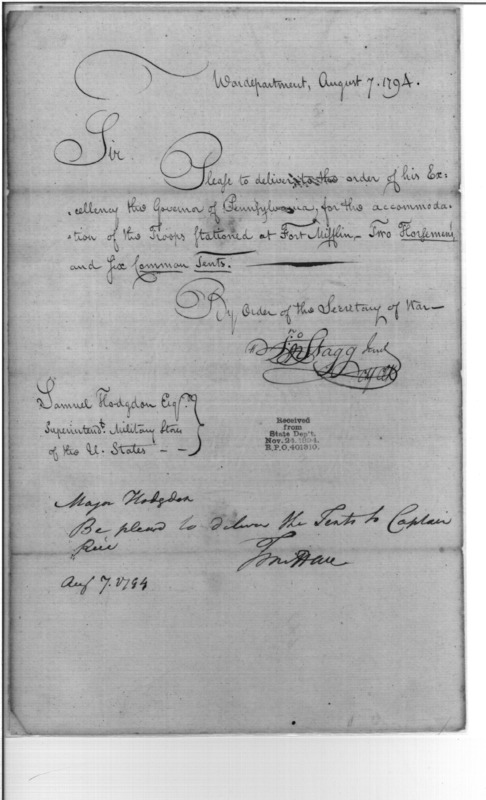 War department, August 7. 1794.
Sir
Please to deliver to the order of his Ex-
cellency the Governor of Pennsylvania, for the accommoda-
tion of the Troops stationed at Fort Mifflin,- Two Horsemens
and Six Common Tents.
By Order of the Secretary of War
Jno Stagg Junr
Samuel Hodgdon Esqr.
Superintendt. Military Stores
of the U. States - -
Received
from
State Dep't.
Nov. 24, 1894.
R.P.O. 401310.
Major Hodgdon
Be pleased to deliver the Tents to Captain
Rice
Aug 7. 1794